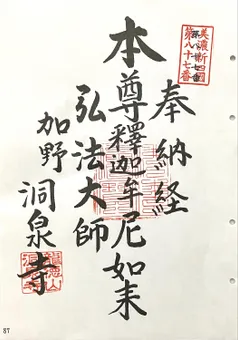 美濃新四國
第八十七番
奉納経
本尊釋迦牟尼如来
弘法大師
加野
洞泉寺
87